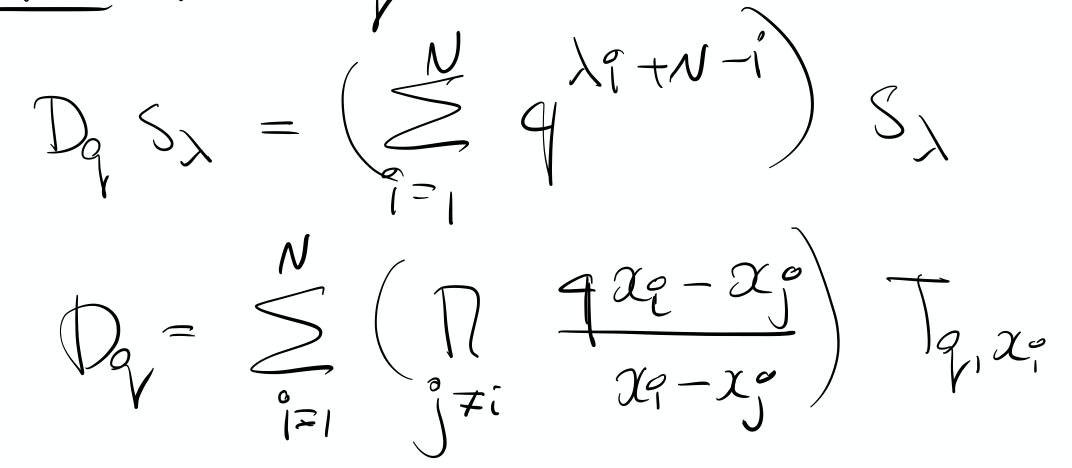 D_q S_λ = ( \sum_{i=1}^{N} q^{λ_i + N - i} ) S_λ
D_q = \sum_{i=1}^{N} ( \prod_{j≠i} \frac{q x_i - x_j}{x_i - x_j} ) T_{q, x_i}